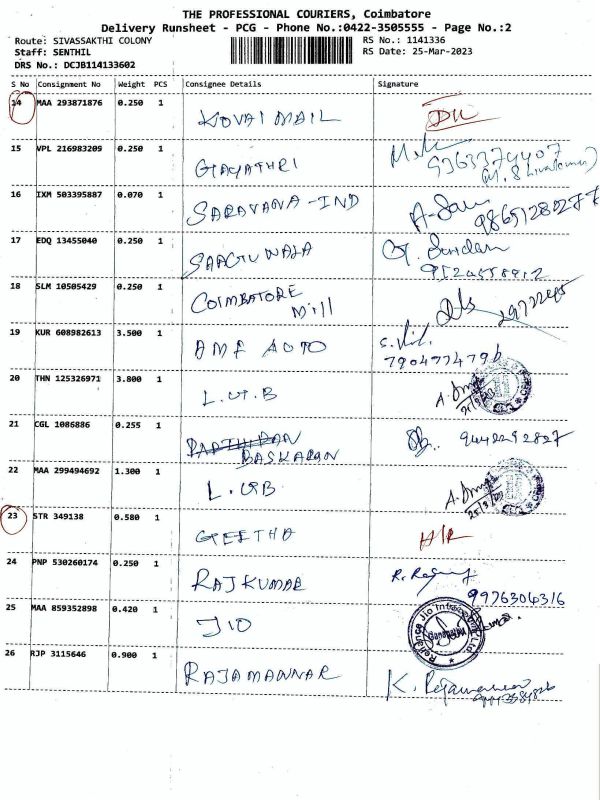 THE PROFESSIONAL COURIERS, Coimbatore
Delivery Runsheet - PCG - Phone No.:0422-3505555 - Page No.:2
Route: SIVASSAKTHI COLONY RS No.: 1141336
Staff: SENTHIL RS Date: 25-Mar-2023
DRS No.: DCJB114133602
S No Consignment No Weight PCS Consignee Details Signature
14 MAA 293871876 0.250 1 KOVAI MAIL
15 VPL 216983209 0.250 1 GAYATHRI
16 IXM 503395887 0.070 1 SARAVANA-IND
17 EDQ 13455040 0.250 1
18 SLM 10505429 0.250 1 COIMBATORE
Mill
19 KUR 608982613 3.500 1 AUTO
7904774796
20 THN 125326971 3.800 1
21 CGL 1086886 0.255 1
BASKARAN
22 MAA 299494692 1.300 1
23 STR 349138 0.580 1 GEETHA
24 PNP 530260174 0.250 1 RAJKUMAR
9976304316
25 MAA 859352898 0.420 1 JIO
26 RJP 3115646 0.900 1 RAJAMANNAR